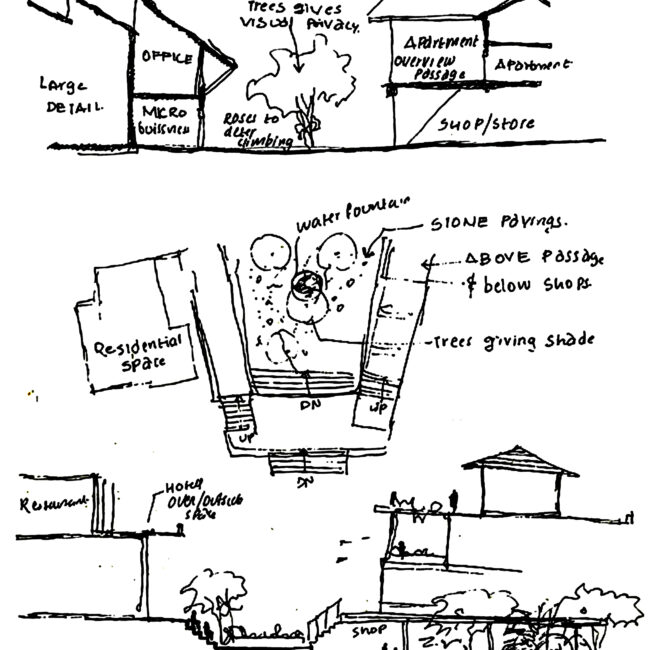 Trees gives
visual privacy.
OFFICE
Apartment
overview
passage
Apartment
Large
DETAIL.
MICRO
business
Roses to
deter
climbing
SHOP/STORE
water fountain
STONE Pavings.
ABOVE Passage
& below SHOPS
Trees giving shade
Residential
space
DN
UP
UP
DN
Restaurant
HOTEL
OVER/outside
space
SHOP